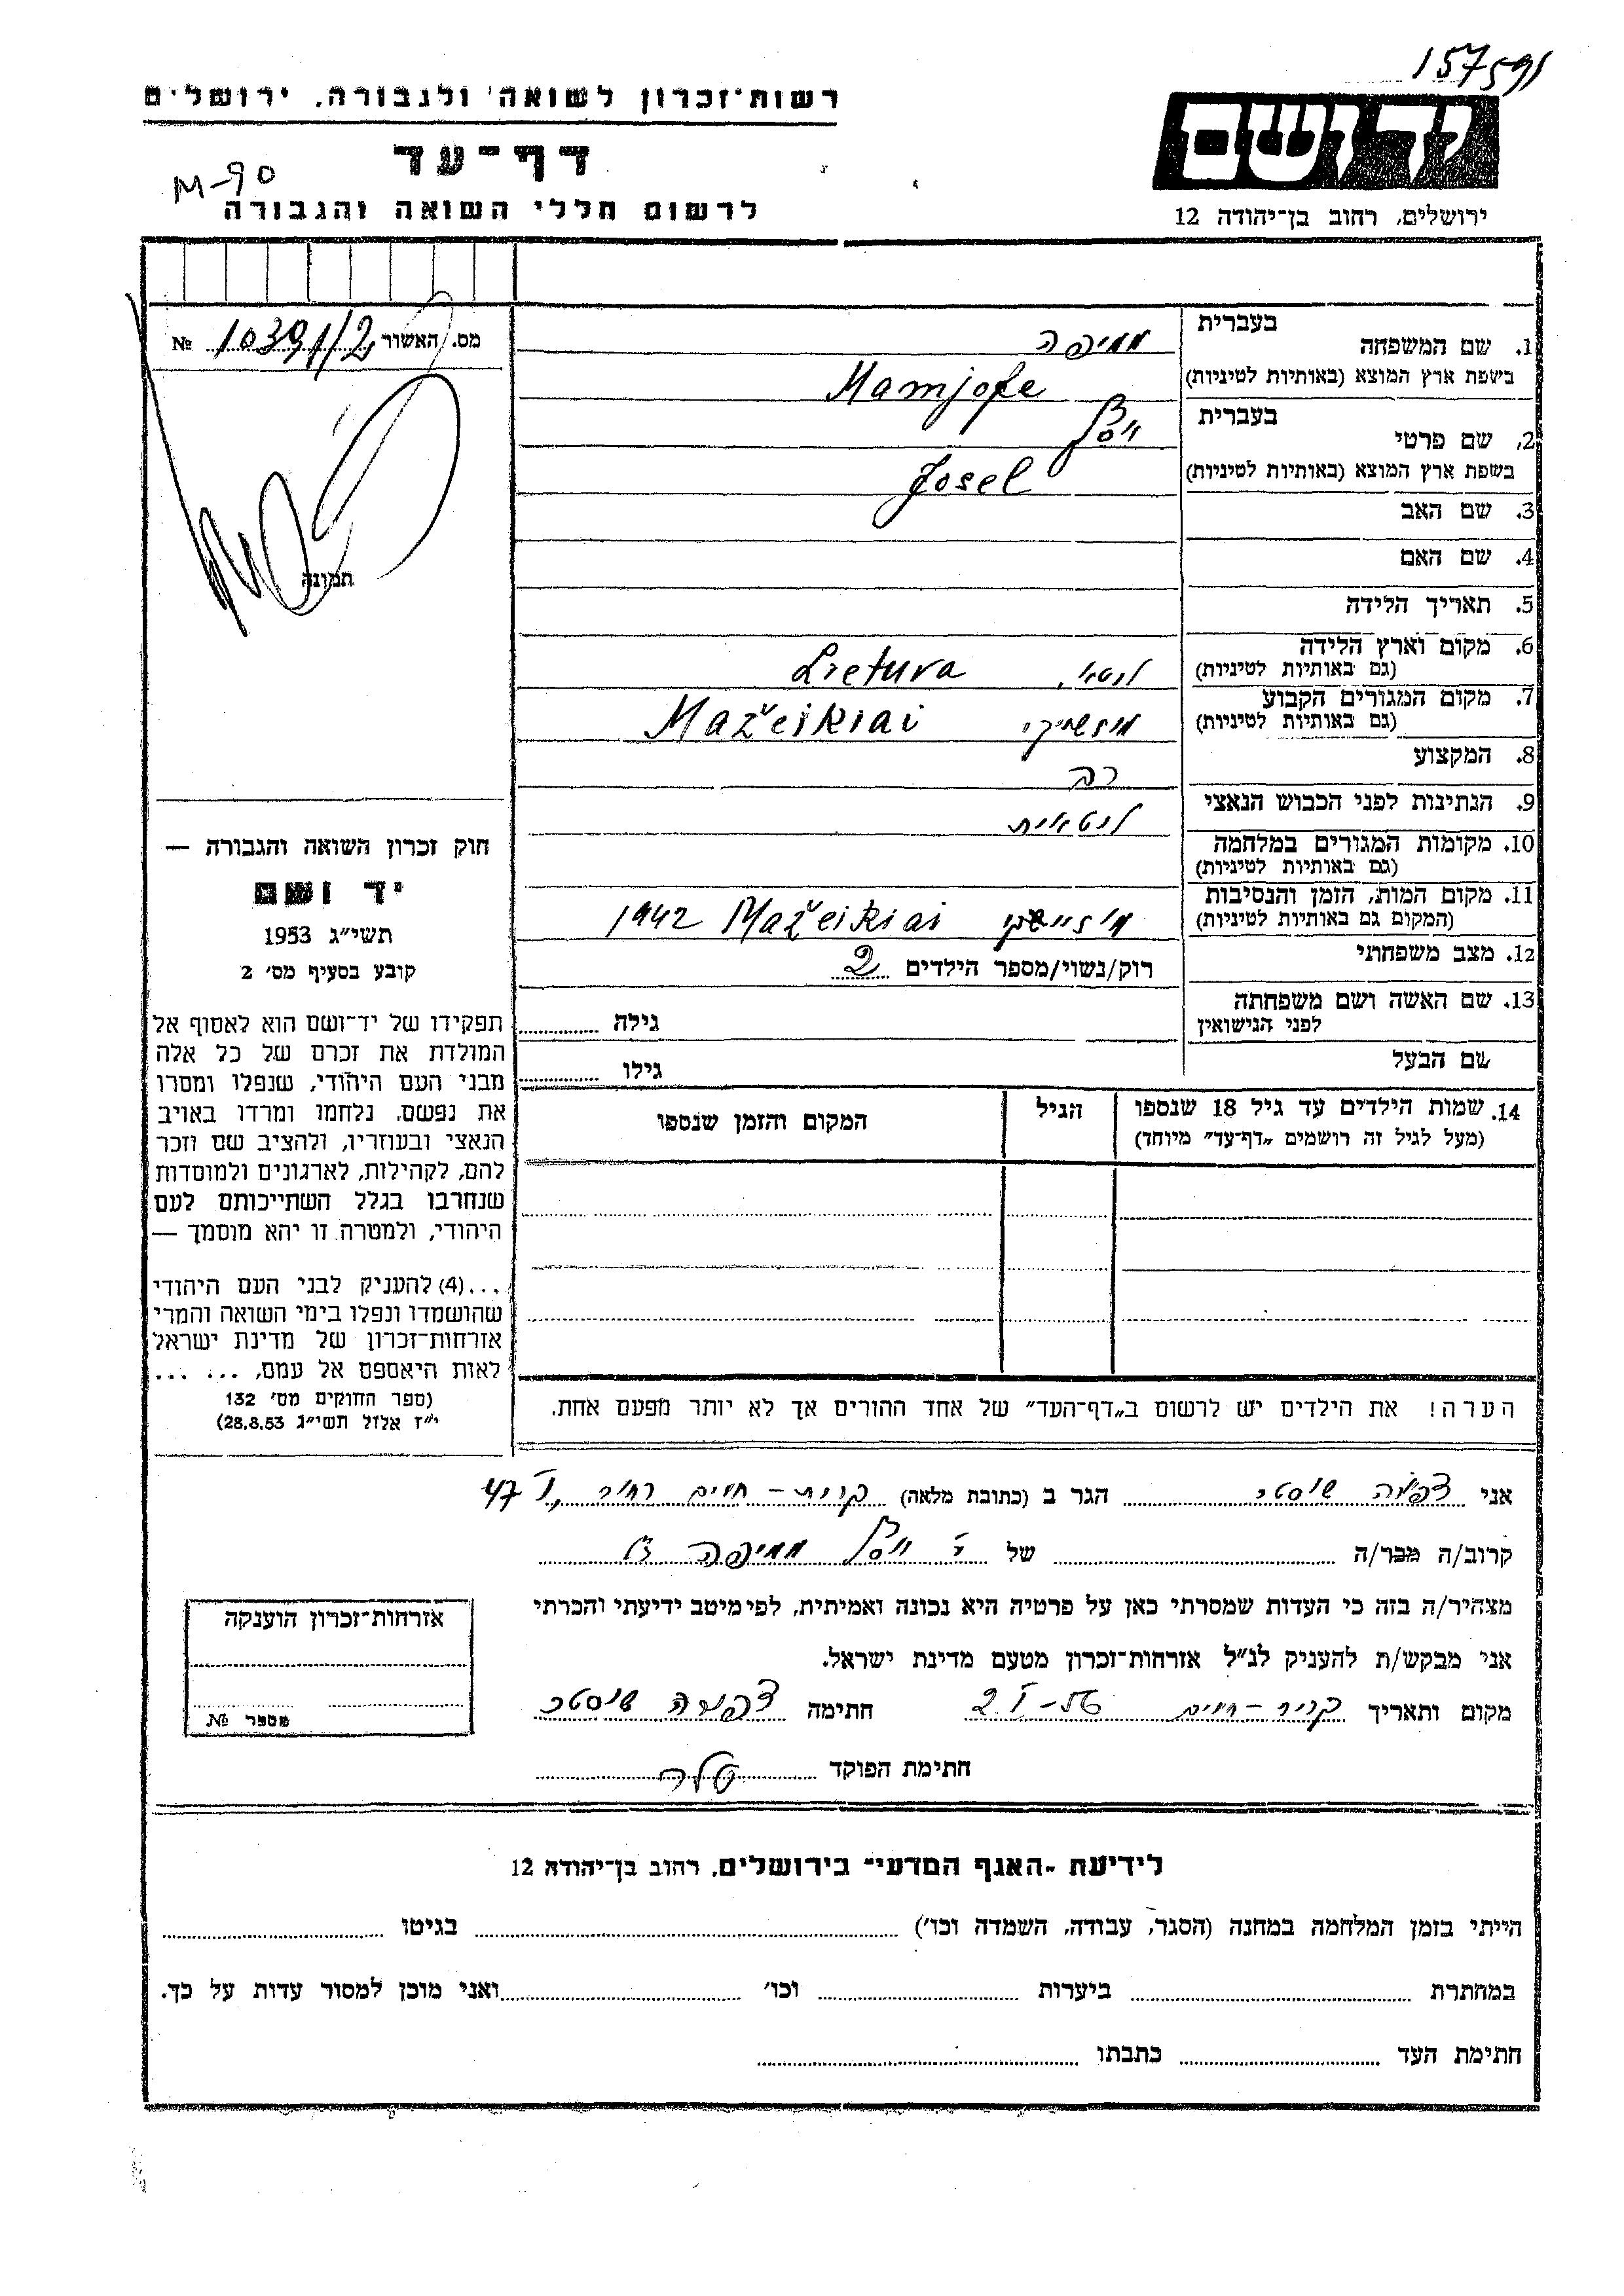 157591
רשות־זכרון לשואה ולגבורה, ירושלים
דף־עד
M-90
לרשום חללי השואה והגבורה
יד ושם
ירושלים, רחוב בן־יהודה 12
מס. האשור 10391/2 №
תמונה
בעברית
1. שם המשפחה ממיפה
בשפת ארץ המוצא (באותיות לטיניות) Mamjofe
בעברית
2. שם פרטי יוסל
בשפת ארץ המוצא (באותיות לטיניות) Josel
3. שם האב
4. שם האם
5. תאריך הלידה
6. מקום וארץ הלידה Lietuva
(גם באותיות לטיניות)
7. מקום המגורים הקבוע Mažeikiai
(גם באותיות לטיניות)
8. המקצוע רב
9. הנתינות לפני הכבוש הנאצי ליטאית
10. מקומות המגורים במלחמה
(גם באותיות לטיניות)
11. מקום המות, הזמן והנסיבות Mažeikiai 1942
(המקום גם באותיות לטיניות)
12. מצב משפחתי רוק/נשוי/מספר הילדים 2
13. שם האשה ושם משפחתה גילה
לפני הנישואין
שם הבעל גילו
14. שמות הילדים עד גיל 18 שנספו הגיל המקום והזמן שנספו
(מעל לגיל זה רושמים „דף־עד" מיוחד)
הערה! את הילדים יש לרשום ב„דף־העד" של אחד ההורים אך לא יותר מפעם אחת.
חוק זכרון השואה והגבורה —
יד ושם
תשי"ג 1953
קובע בסעיף מס' 2
תפקידו של יד־ושם הוא לאסוף אל
המולדת את זכרם של כל אלה
מבני העם היהודי, שנפלו ומסרו
את נפשם. נלחמו ומרדו באויב
הנאצי ובעוזריו, ולהציב שם וזכר
להם, לקהילות, לארגונים ולמוסדות
שנחרבו בגלל השתייכותם לעם
היהודי, ולמטרה זו יהא מוסמך —
...(4) להעניק לבני העם היהודי
שהושמדו ונפלו בימי השואה והמרי
אזרחות־זכרון של מדינת ישראל
לאות היאספם אל עמם, ... ...
(ספר החוקים מס' 132
י"ז אלול תשי"ג 28.8.53)
אני צפורה שוסטר הגר ב (כתובת מלאה) קרית-חיים רחוב ו' 47
קרוב/ה מכר/ה של ר' יוסל ממיפה ז"ל
מצהיר/ה בזה כי העדות שמסרתי כאן על פרטיה היא נכונה ואמיתית, לפי מיטב ידיעתי והכרתי
אני מבקש/ת להעניק לנ"ל אזרחות־זכרון מטעם מדינת ישראל.
מקום ותאריך קרית-חיים 2.I-56 חתימה צפורה שוסטר
חתימת הפוקד
אזרחות־זכרון הוענקה
מספר №
לידיעת ־האגף המדעי־ בירושלים, רחוב בן־יהודה 12
הייתי בזמן המלחמה במחנה (הסגר, עבודה, השמדה וכו') בגיטו
במחתרת ביערות וכו' ואני מוכן למסור עדות על כך.
חתימת העד כתבתו